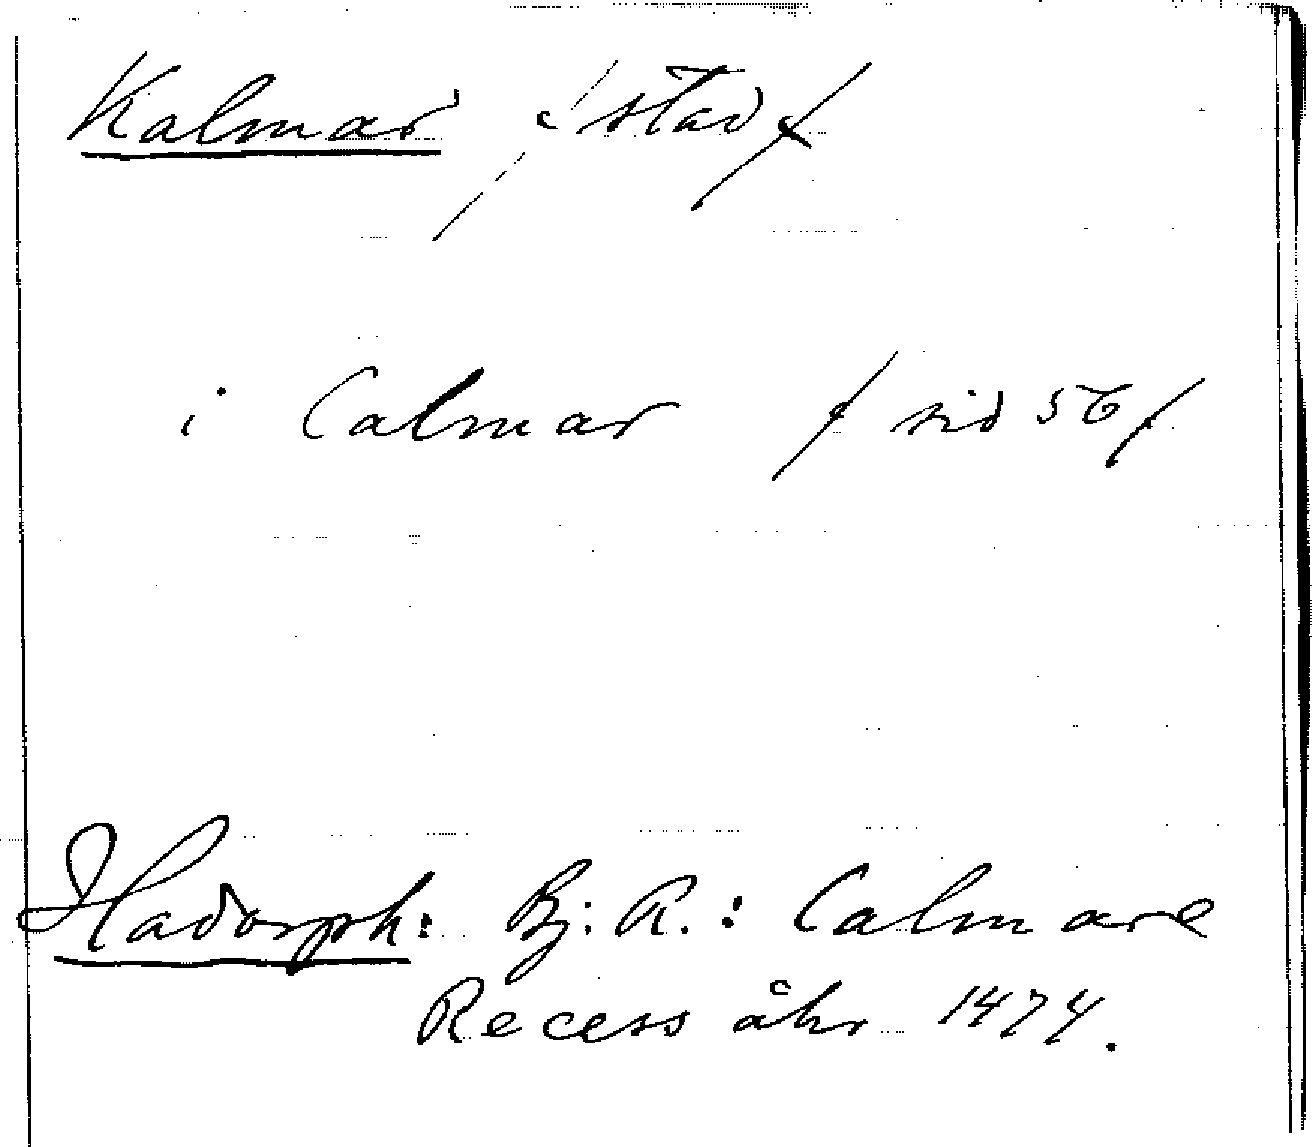 Kalmar /: stad :/
i Calmar /: sid 56 :/
Hadorph: Bj. R.: Calmare
Recess åhr 1474.